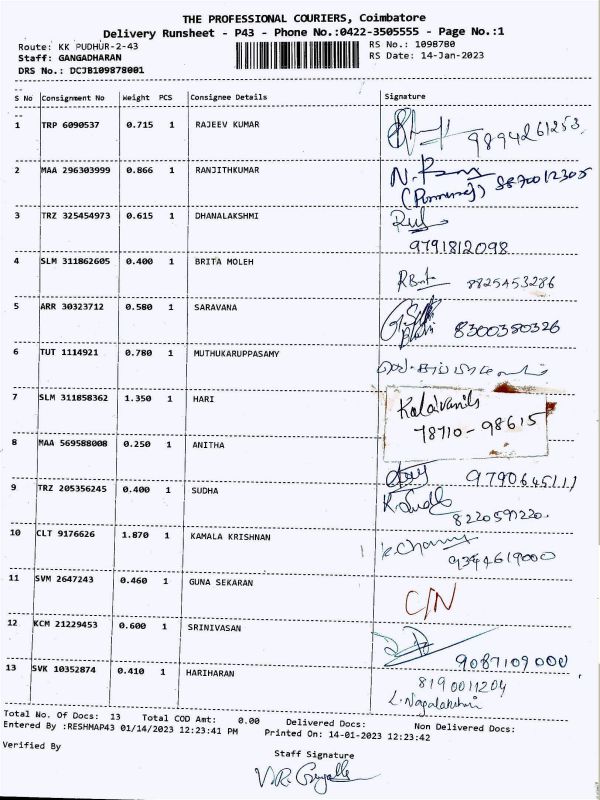 THE PROFESSIONAL COURIERS, Coimbatore
Delivery Runsheet - P43 - Phone No.:0422-3505555 - Page No.:1
Route: KK PUDHUR-2-43 RS No.: 1098780
Staff: GANGADHARAN RS Date: 14-Jan-2023
DRS No.: DCJB109878001
S No Consignment No Weight PCS Consignee Details Signature
1 TRP 6090537 0.715 1 RAJEEV KUMAR 9894261253
2 MAA 296303999 0.866 1 RANJITHKUMAR N. 8870012305
3 TRZ 325454973 0.615 1 DHANALAKSHMI
9791812098
4 SLM 311862605 0.400 1 BRITA MOLEH 8825453286
5 ARR 30323712 0.580 1 SARAVANA 8300350326
6 TUT 1114921 0.780 1 MUTHUKARUPPASAMY
7 SLM 311858362 1.350 1 HARI Kalaivani
78710-98615
8 MAA 569588008 0.250 1 ANITHA 9790645111
9 TRZ 205356245 0.400 1 SUDHA K.Sudha
8220591220
10 CLT 9176626 1.870 1 KAMALA KRISHNAN
9344619000
11 SVM 2647243 0.460 1 GUNA SEKARAN C/N
12 KCM 21229453 0.600 1 SRINIVASAN 9087109000
13 SVK 10352874 0.410 1 HARIHARAN 8190011204
L. Nagalakshmi
Total No. Of Docs: 13 Total COD Amt: 0.00 Delivered Docs: Non Delivered Docs:
Entered By :RESHMAP43 01/14/2023 12:23:41 PM Printed On: 14-01-2023 12:23:42
Verified By Staff Signature